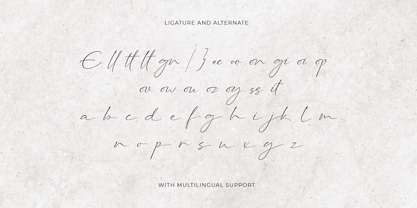 LIGATURE AND ALTERNATE
E ll tt lt gn / } ee oo on gi oi op
ov ow ou oz oy ss it
a b c d e f g h i j k l m
n o p r s u x y z
WITH MULTILINGUAL SUPPORT